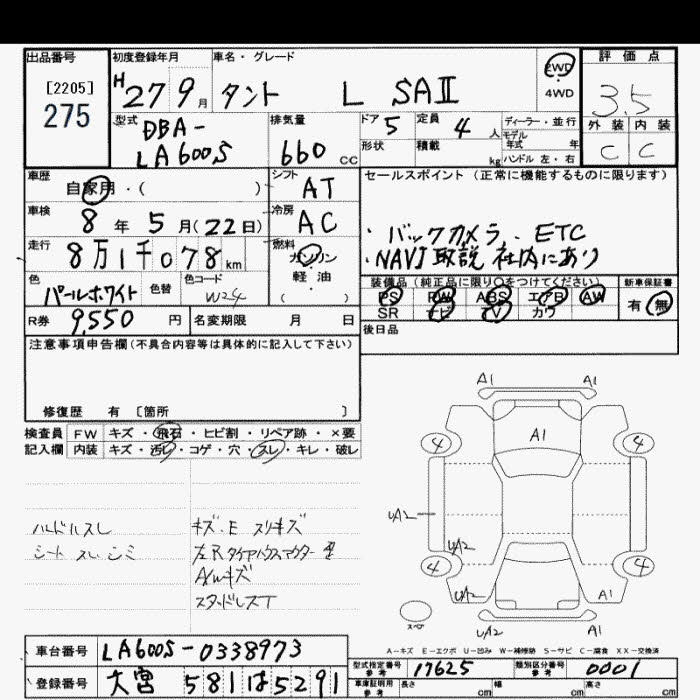 出品番号
[2205]
275
初度登録年月
H27 9月
車名・グレード
タント L SAⅡ
2WD
4WD
評価点
3.5
外装 内装
C C
型式
DBA-
LA600S
排気量
660 CC
ドア 5
形状
定員 4 人
積載 kg
ディーラー・並行
モデル年式 年
ハンドル 左・右
車歴
自家用・( )
シフト
AT
車検
8年5月(22日)
冷房
AC
走行
8万1千078km
燃料
ガソリン
軽・油
( )
色
パールホワイト
色替
色コード
W24
R券
9,550円
名変期限 月 日
セールスポイント(正常に機能するものに限ります)
・バックカメラ・ETC
・NAVI取説 社内にあり
装備品(純正品に限り○をつけてください)
PS PW ABS エアB AW
SR ナビ TV カワ
新車保証書
有・無
後日品
注意事項申告欄(不具合内容等は具体的に記入して下さい)
修復歴 有 〔箇所 〕
検査員
記入欄
FW キズ・飛石・ヒビ割・リペア跡・×要
内装 キズ・汚レ・コゲ・穴・スレ・キレ・破レ
ハンドルスレ
シート スレ シミ
キズ・E スリキズ
AWキズ
スタッドレスT
A1 A1
A1
4 4
UA2
UA2
4 4
UA2 A1
UA2 A1
スペア
A-キズ E-エクボ U-凹み W-補修跡 S-サビ C-腐食 XX-交換済
車台番号
LA600S-0338973
登録番号
大宮 581 は 5291
型式指定番号
参考
17625
類別区分番号
参考
0001
車庫証明用
参考
長さ cm 幅 cm 高さ cm